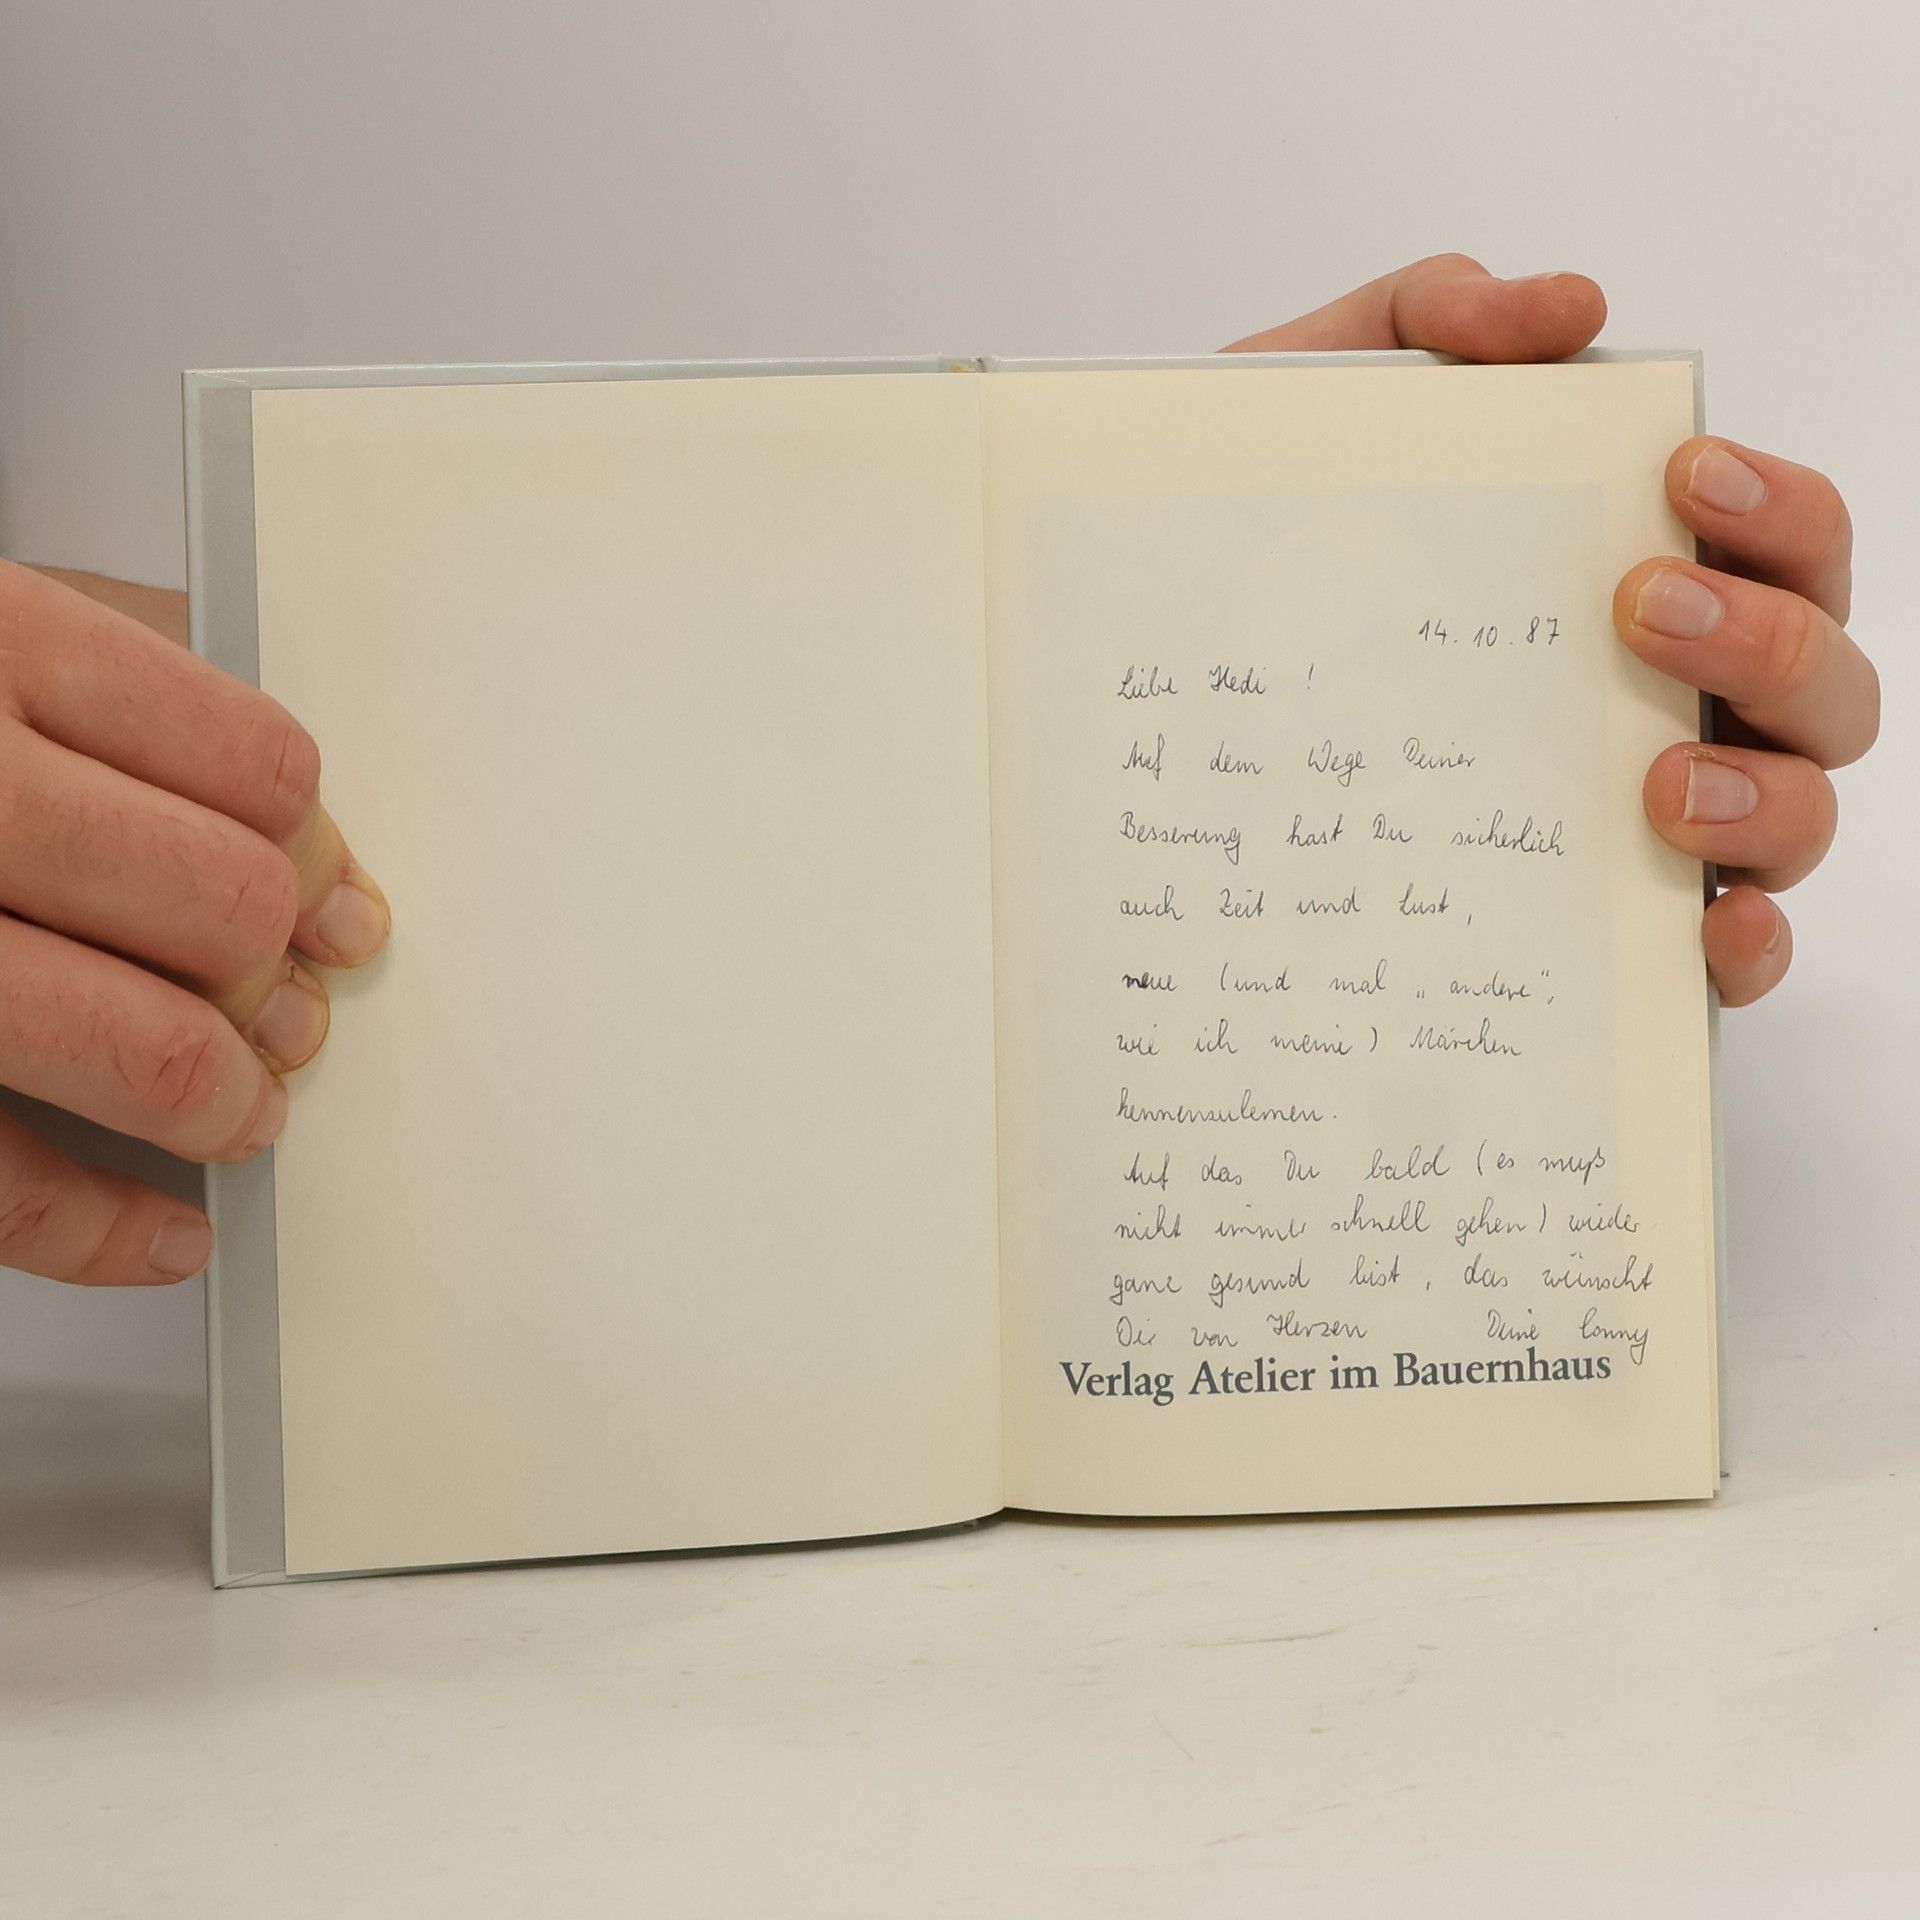 14.10.87
Liebe Hedi !
Auf dem Wege Deiner
Besserung hast Du sicherlich
auch Zeit und Lust,
neue (und mal „andere“,
wie ich meine) Märchen
kennenzulernen.
Auf das Du bald (es muß
nicht immer schnell gehen) wieder
ganz gesund bist, das wünscht
Dir von Herzen Deine Conny
Verlag Atelier im Bauernhaus